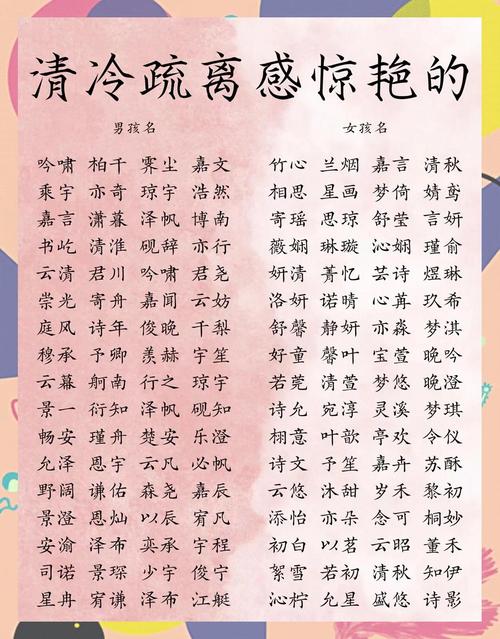 清冷疏离感惊艳的
男孩名 女孩名
吟啸 柏千 霁尘 嘉文 竹心 兰烟 嘉言 清秋
乘宇 亦奇 琼宇 浩然 相思 星画 梦倚 婧鸢
嘉言 潇暮 泽帆 博南 寄瑶 思琼 舒莹 言妍
书屹 清淮 砚辞 亦行 薇娴 琳璇 沁娴 瑾俞
云清 君川 吟啸 君尧 妍清 菁忆 芸诗 煜琳
崇光 寄舟 嘉闻 云妨 洛妍 诺晴 心苒 玖希
庭风 诗年 俊晚 千梨 舒馨 静妍 亦淼 梦淇
穆承 予卿 羡赫 宇笙 好童 馨叶 宝萱 晚吟
云暮 舸南 行之 琼宇 若莞 清萱 梦悠 晚澄
景一 衍知 泽帆 砚知 诗允 宛淳 灵溪 梦琪
畅安 瑾舟 楚安 乐澄 栩意 叶歆 亭欢 令仪
允泽 思宇 云凡 必帆 诗文 予笙 嘉卉 苏酥
野阔 谦佑 森尧 嘉辰 云悠 沐甜 岁禾 黎初
景澄 恩灿 以辰 宥凡 添怡 亦朵 念可 桐妙
安渝 泽布 奕承 宇程 初白 以茗 云昭 董禾
司诺 景琛 少宇 俊宁 絮雪 若初 清秋 知伊
星冉 宥谦 泽布 江艇 沁柠 允星 盛悠 诗影